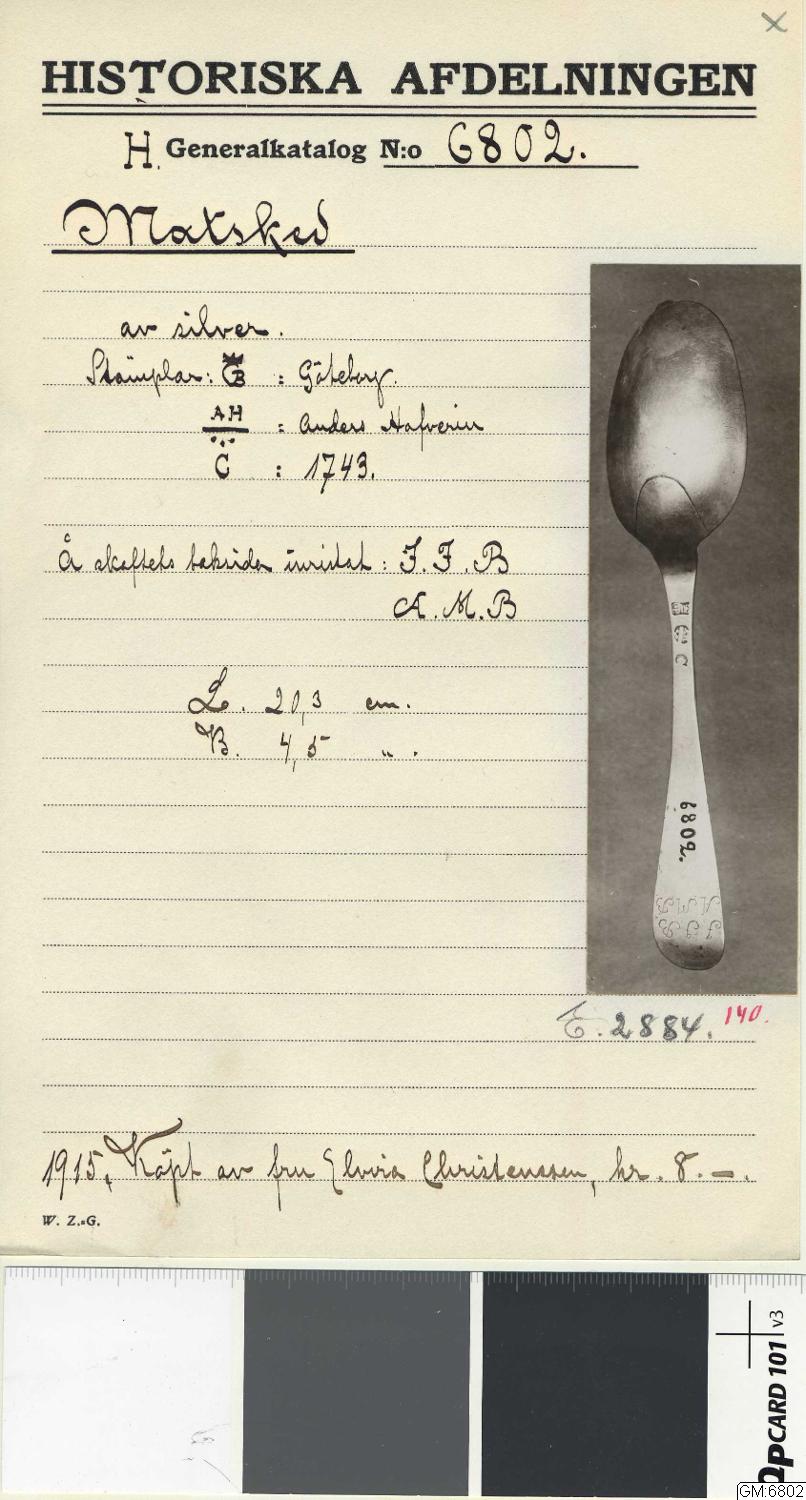 HISTORISKA AFDELNINGEN
H. Generalkatalog N:o 6802.
Matsked
av silver.
Stämplar: GB : Göteborg.
AH : Anders Hafverin
C : 1743.
Å skaftets baksida inristat: J. F. B
A. M. B
L. 20,3 cm.
B. 4,5 " .
C
6802.
A M B
E. 2884. 140.
1915. Köpt av fru Elvira Christenssen, kr. 8.–.
W. Z.-G.
QPCARD 101 v3
GM:6802